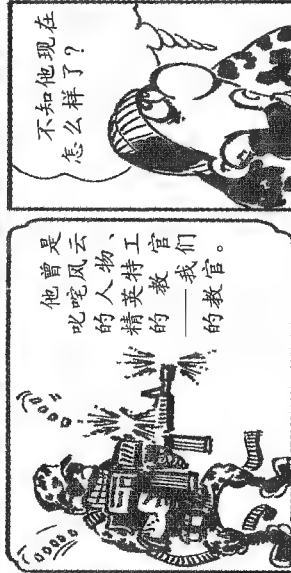 他曾是
叱咤风云
的人物、
精英特工
的教官
——我们
的教官。
不知他现在
怎么样了?